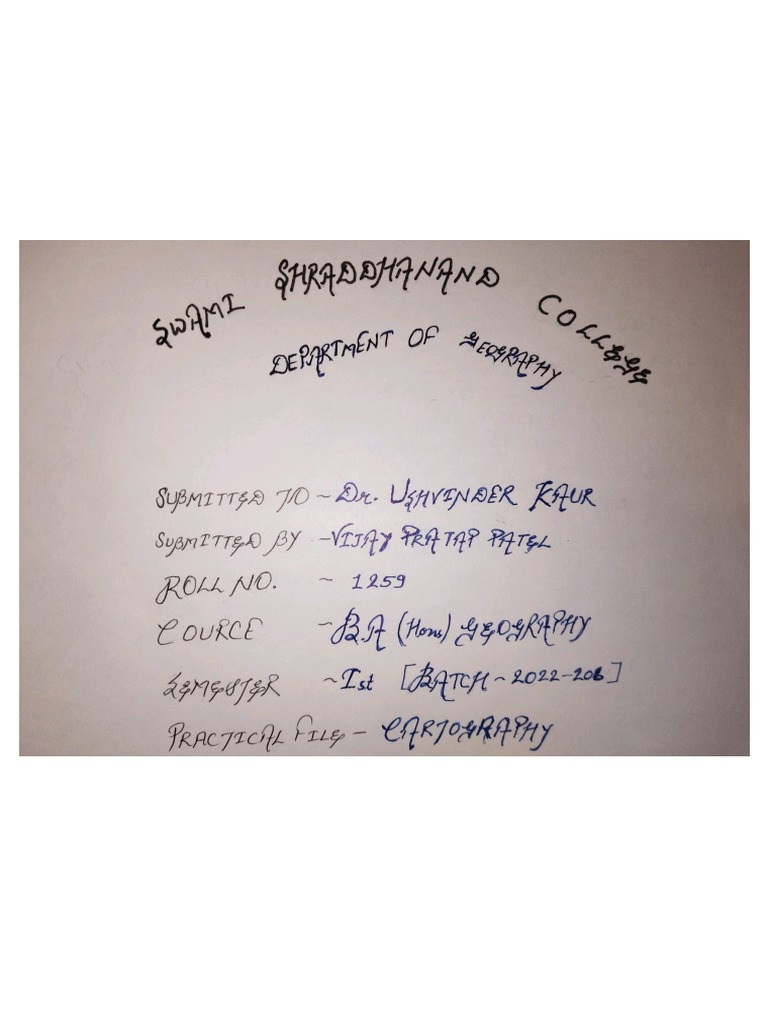 SWAMI SHRADDHANAND COLLEGE
DEPARTMENT OF GEOGRAPHY
SUBMITTED TO ~ Dr. USHVINDER KAUR
SUBMITTED BY ~ VIJAY PRATAP PATEL
ROLL NO. ~ 1259
COURCE ~ B.A (Hons) GEOGRAPHY
SEMESTER ~ Ist [BATCH ~ 2022-
PRACTICAL FILE - CARTOGRAPHY